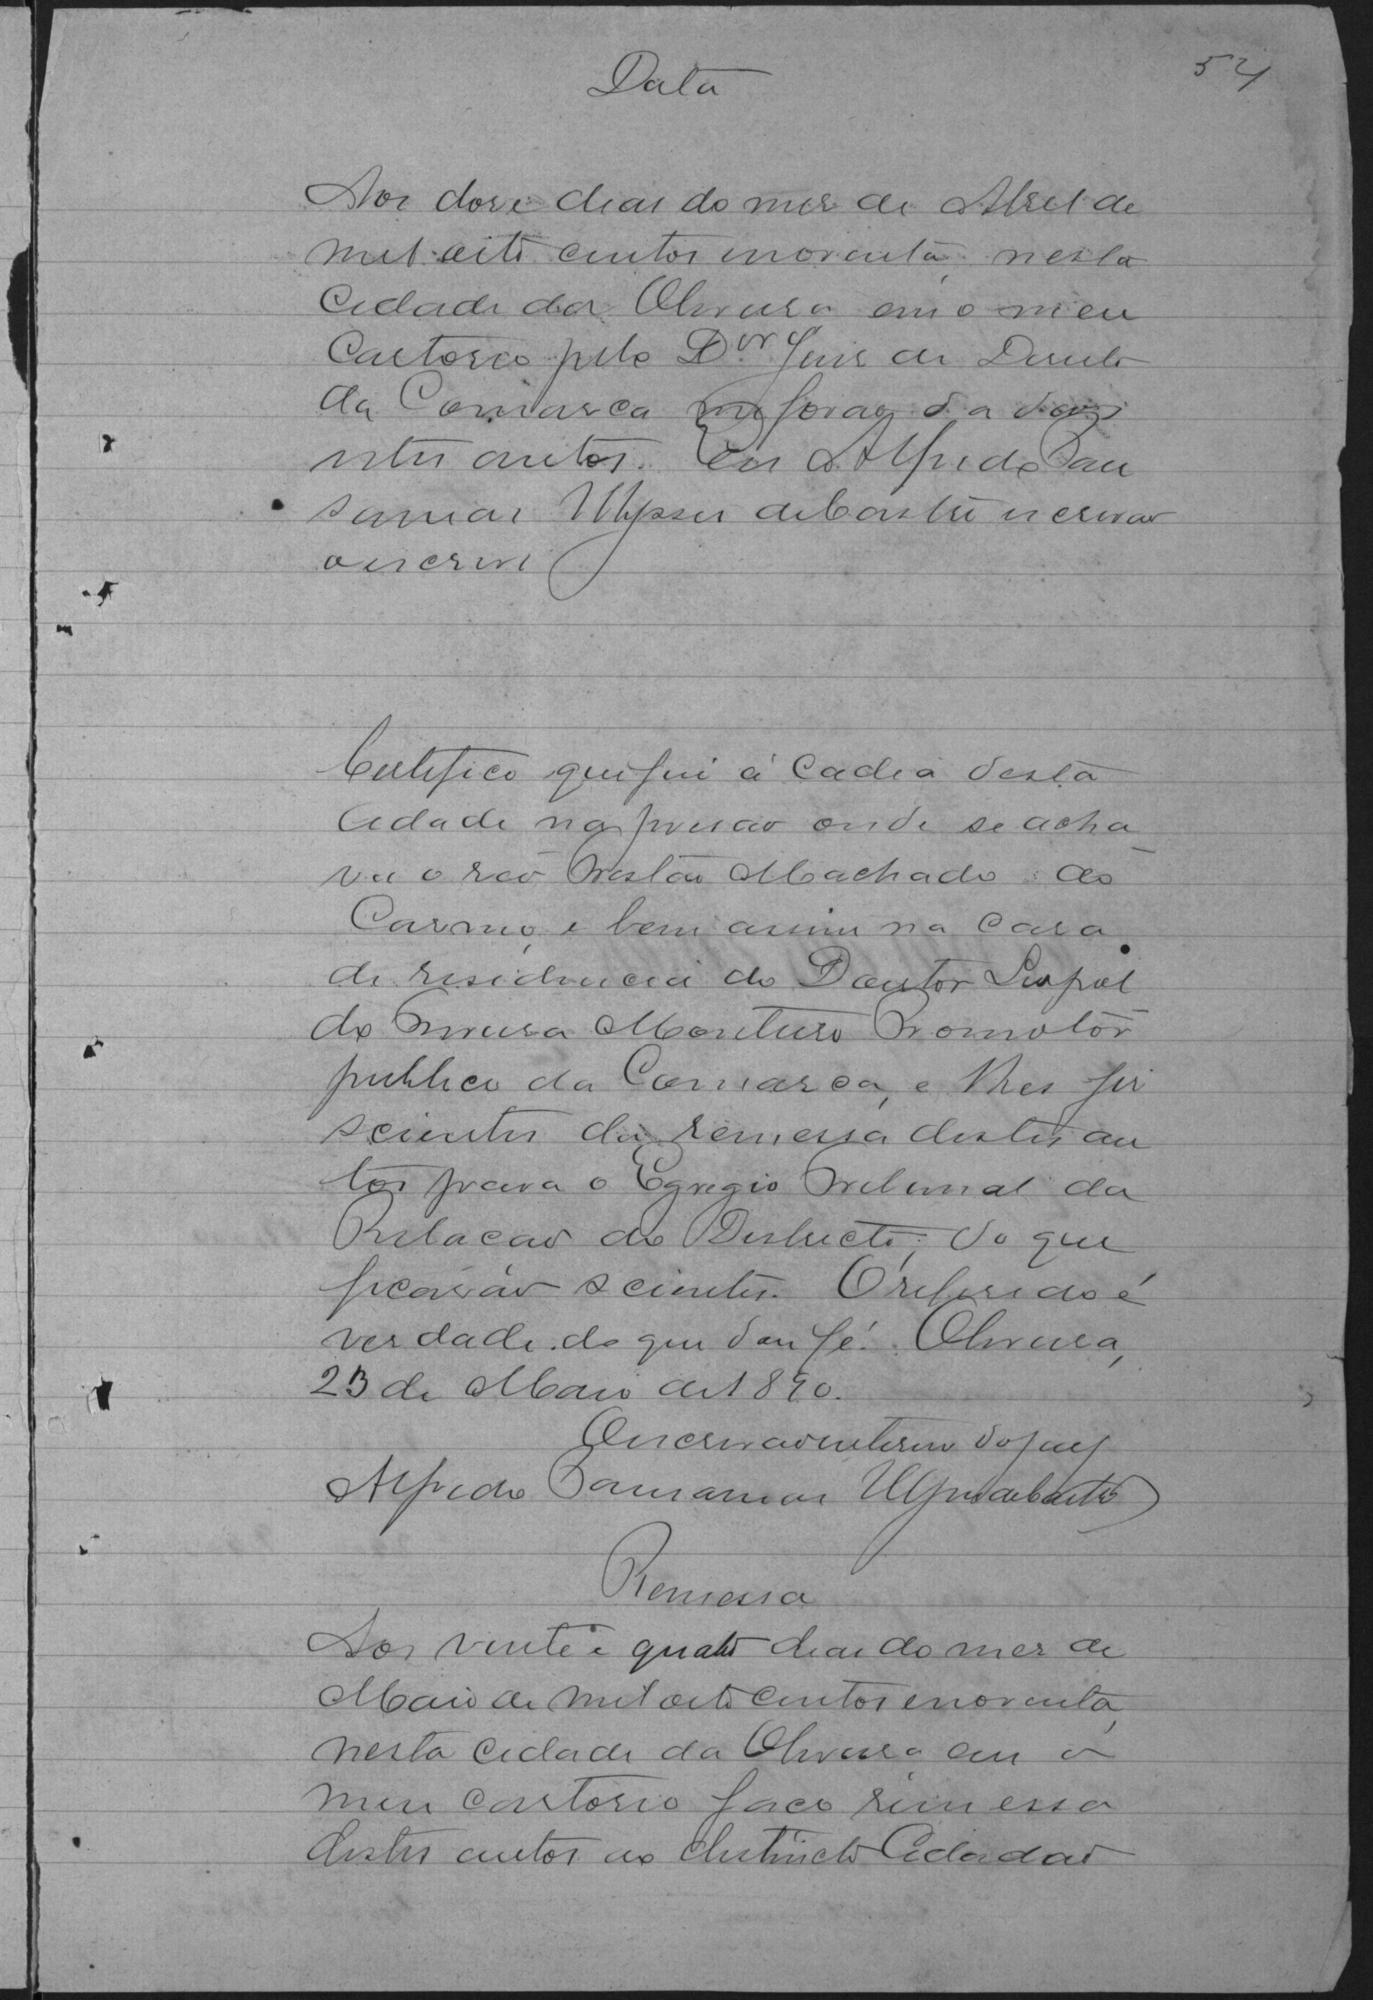 Data
54
Aos doze dias do mez de Abril de
mil oito centos enoventa, nesta
Cidade da Oliveira em o meu
Cartorio pelo Dor Juiz de Direito
da Comarca me forão dados
estes autos. Eu Alfredo Pau
sanias Ulysses de Castro escrivão
o escrevi
Certifico que fui á Cadea desta
Cidade na prisão onde se acha
va o réo Tristão Machado do
Carmo, e bem assim na casa
de residencia do Doutor Leopol
do Monteiro Promotor
publico da Comarca, e lhes fiz
scientes da remessa destes au
tos para o Egregio Tribunal da
Relacão do Districto, do que
ficarão scientes. O referido é
verdade do que dou fé. Oliveira,
23 de Maio de 1890.
O escrivão interino do jury
Alfredo Pausanias Ulysses de Castro
Remessa
Aos vinte e quatro dias do mez de
Maio de mil oito centos enoventa,
nesta cidade da Oliveira em o
meu cartorio faco remessa
destes autos ao distincto Cidadão